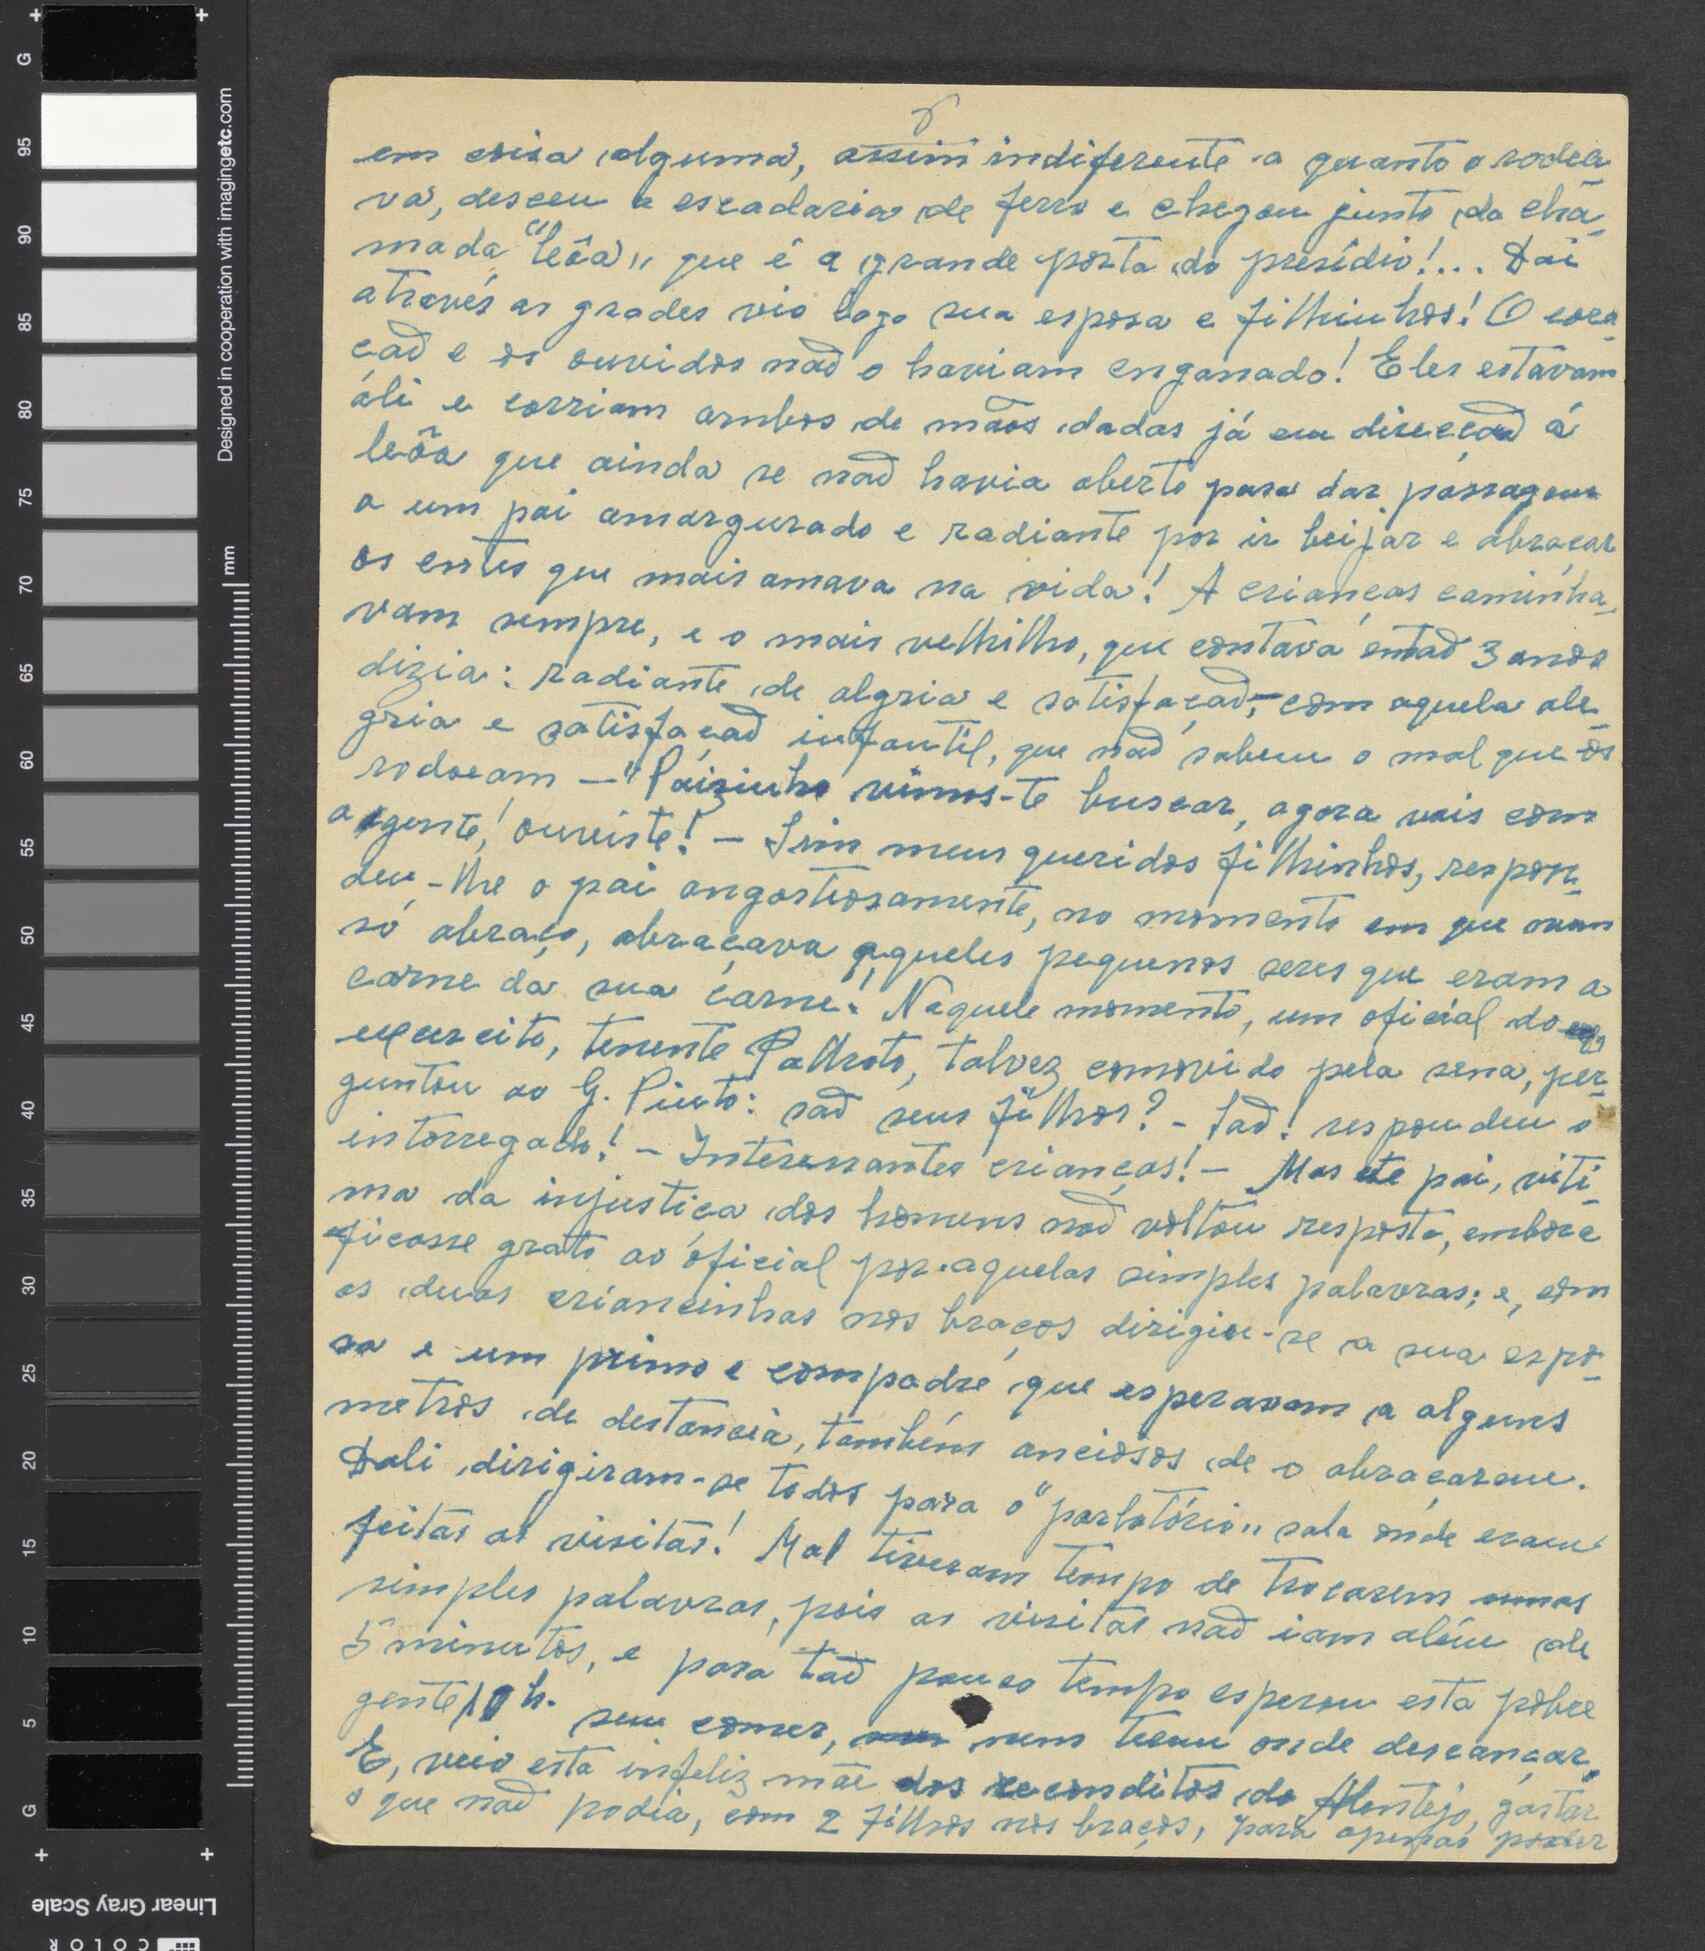 em coisa alguma, assim indiferente a quanto o rodea-
va, desceu a escadaria de ferro e chegou junto da cha-
mada "leôa" que é a grande porta do presídio!... Dai
através as grades vio logo sua esposa e filhinhos! O cora-
çaõ e os ouvidos naõ o haviam enganado! Eles estavam
áli e corriam ambos de maõs dadas já em direcçaõ á
leôa que ainda se naõ havia aberto para dar passagem
a um pai amargurado e radiante por ir beijar e abraçar
os entes que mais amava na vida! A crianças caminha-
vam sempre, e o mais velhilho, que contava entaõ 3 anos
dizia: radiante de algria e satisfaçaõ, com aquela ale-
gria e satisfaçaõ infantil, que naõ sabem o mal que os
rodeam — "Paisinho vimos-te buscar, agora vais com
a gente! ouviste! — Sim meus queridos filhinhos, respon-
deu-lhe o pai angostiosamente, no momento em que num
só abraço, abraçava aqueles pequenos seres que eram a
carne da sua carne. Naquele momento, um oficial do
exercito, tenente Palhoto, talvez comovido pela sena, per-
guntou ao G. Pinto: saõ seus filhos? - Saõ! respondeu o
intorregado! — Interessantes crianças! — Mas este pai, viti-
ma da injustiça dos homens naõ voltou resposta, embora
ficasse grato ao oficial por aquelas simples palavras; e, com
as duas criancinhas nos braços dirigiu-se a sua espo-
sa e um primo e compadre que esperavam a alguns
metros de destancia, tambêm anciosos de o abraçarem.
Dali dirigiram-se todos para o "parlatório" sala onde eram
feitas as visitas! Mal tiveram tempo de trocarem umas
simples palavras, pois as visitas naõ iam alêm de
5 minutos, e para taõ pouco tempo esperou esta pobre
gente 10 h. sem comer, nem terem onde descançar.
E, veio esta infeliz mãe dos reconditos do Alentejo, gastar
o que naõ podia, com 2 filhos nos braços, para apenas poder